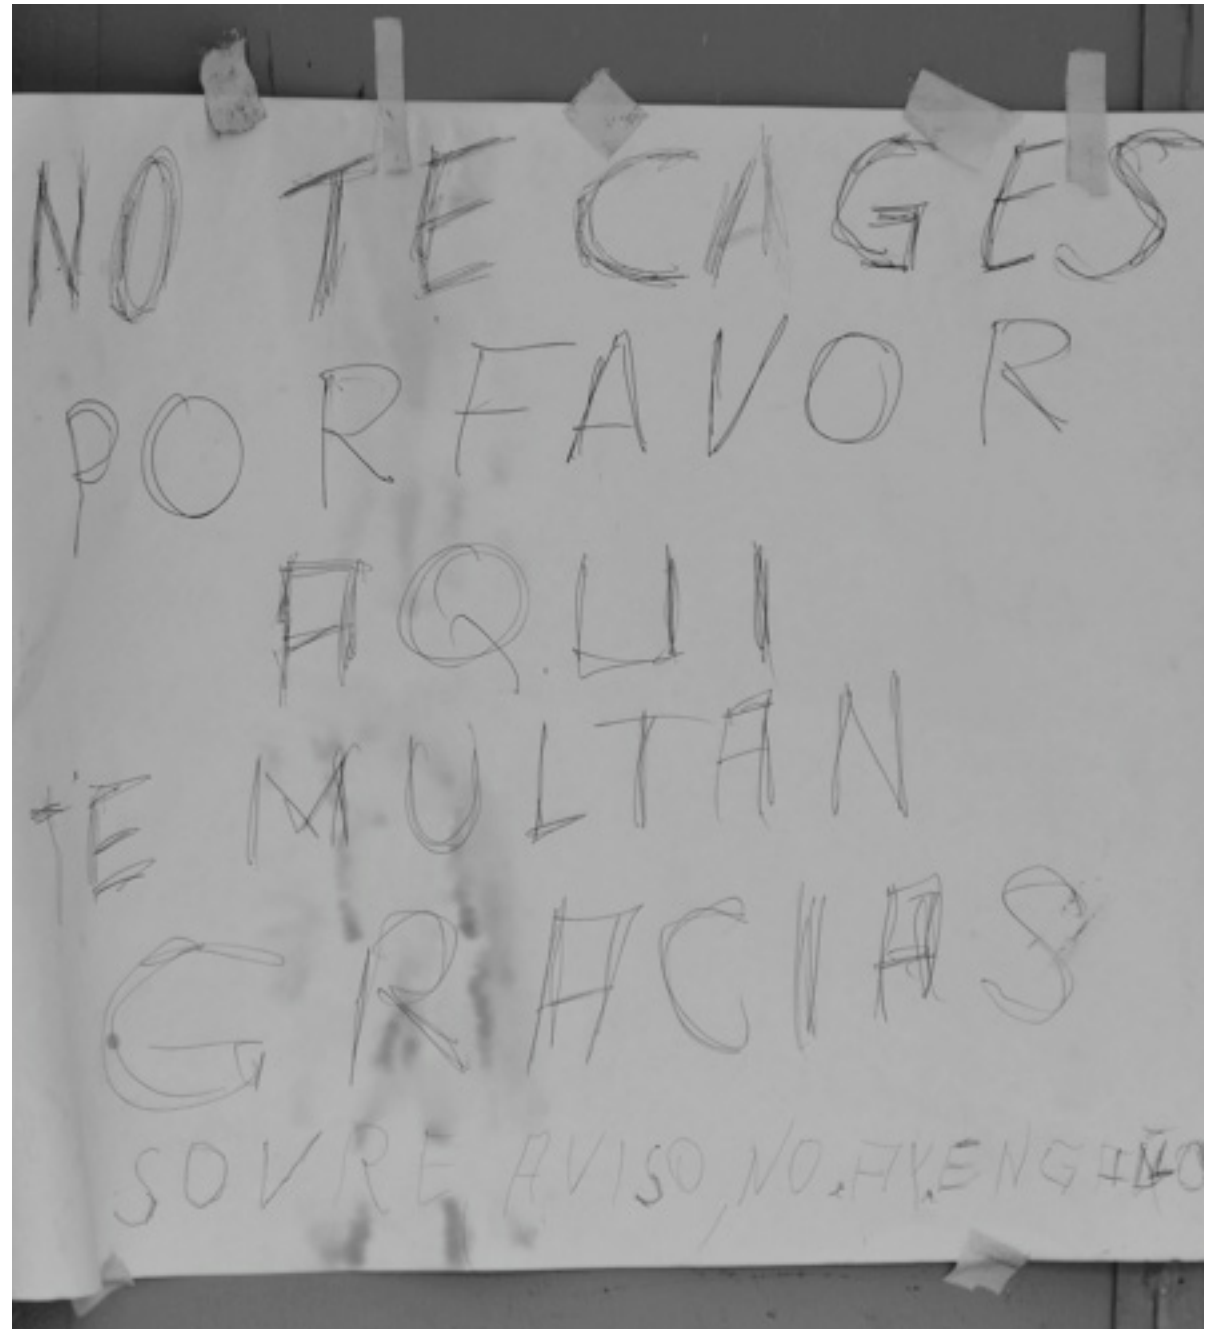 NO TE CAGES
POR FAVOR
AQUI
TE MULTAN
GRACIAS
SOVRE AVISO, NO.AY.ENGAÑO